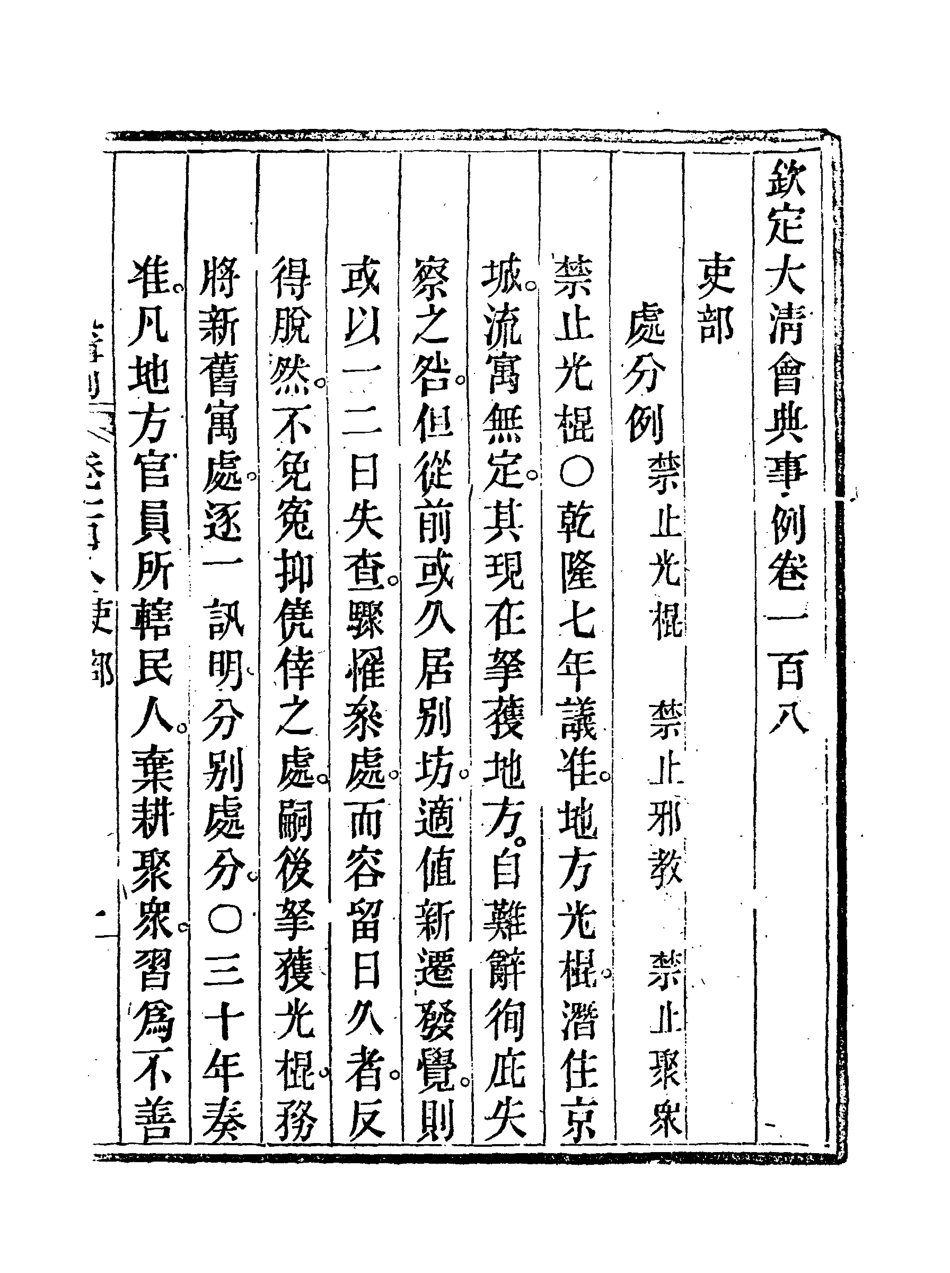 欽定大清會典事例卷一百八
吏部
處分例 禁止光棍 禁止邪教 禁止聚衆
禁止光棍○乾隆七年議准。地方光棍。潛住京
城。流寓無定。其現在拏獲地方。自難辭徇庇失
察之咎。但從前或久居別坊。適值新遷發覺。則
或以一二日失查。驟罹叅處。而容留日久者。反
得脫然。不免寃抑僥倖之處。嗣後拏獲光棍。務
將新舊寓處。逐一訊明。分別處分。○三十年奏
准。凡地方官員所轄民人。棄耕聚衆。習爲不善
吏部